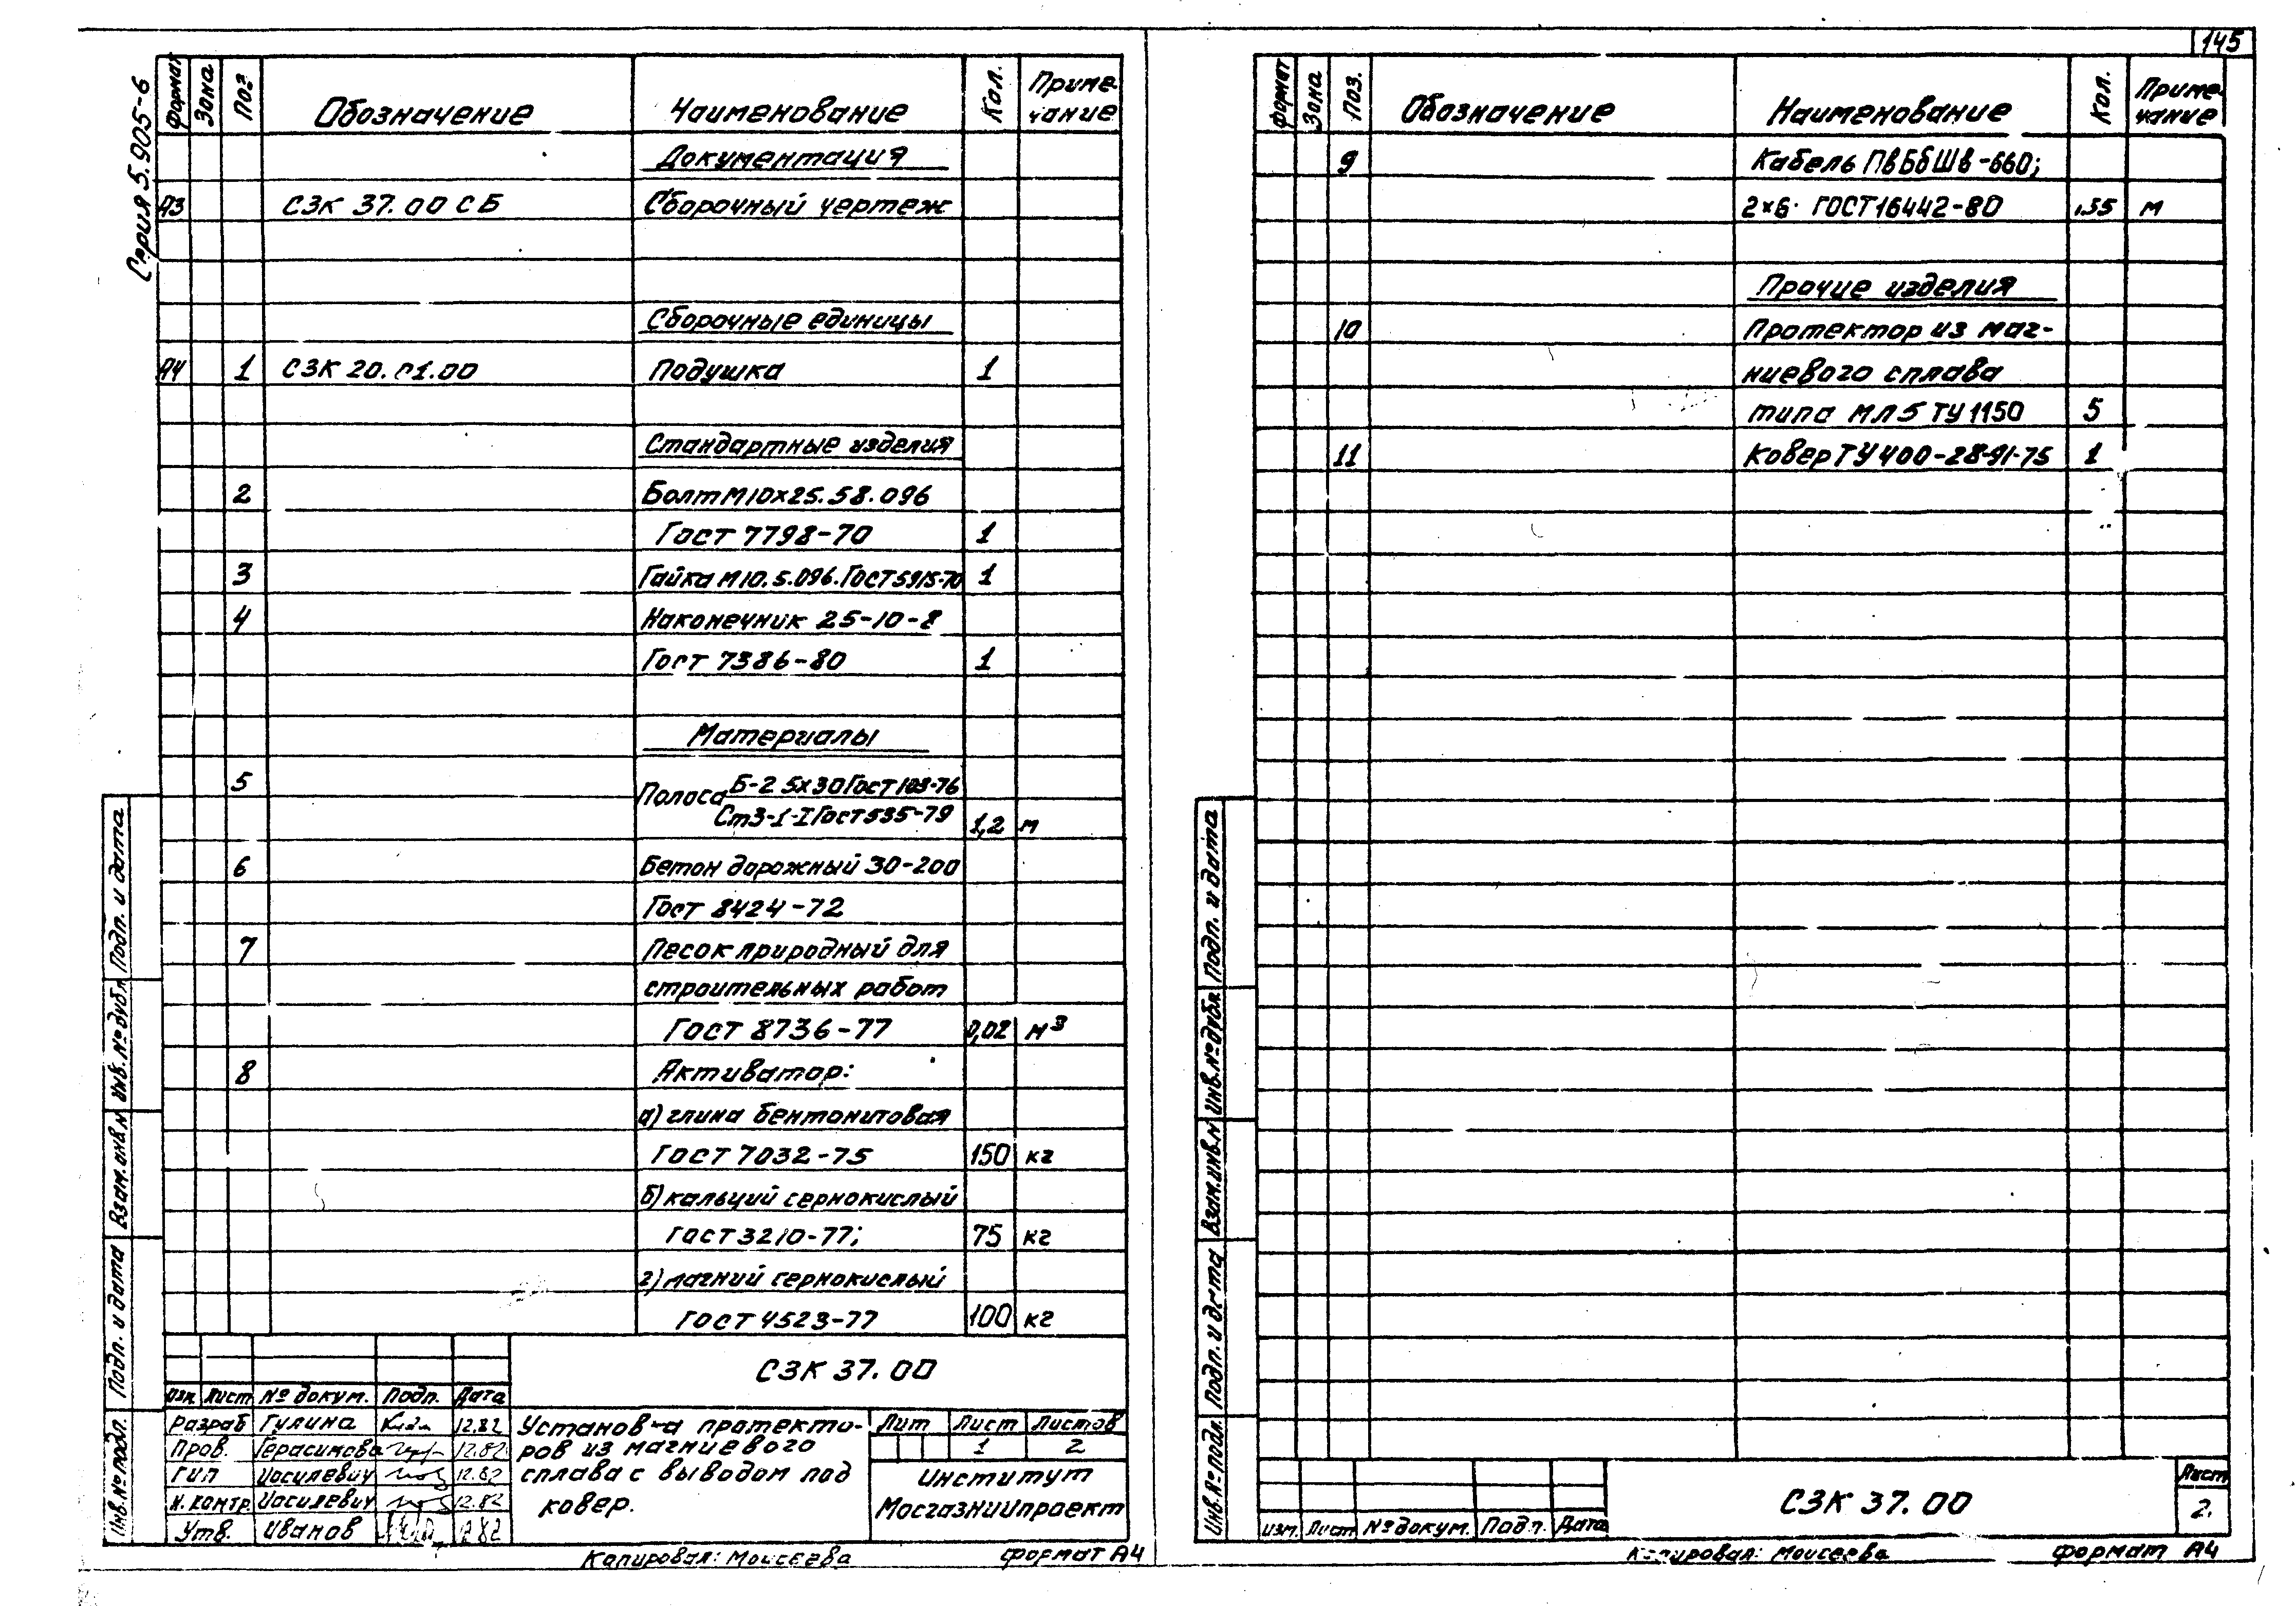 145
Серия 5.905-6
Формат Зона Поз Обозначение Наименование Кол. Приме-
чание
Документация
А3 СЗК 37.00 СБ Сборочный чертеж
Сборочные единицы
А4 1 СЗК 20.01.00 Подушка 1
Стандартные изделия
2 Болт М10х25.58.096
Гост 7798-70 1
3 Гайка М10.5.096.Гост 5915-70 1
4 Наконечник 25-10-8
Гост 7386-80 1
Материалы
5 Полоса Б-2 5х30 Гост 103-76
Ст3-1-I Гост 535-79 1,2 м
6 Бетон дорожный 30-200
Гост 8424-72
7 Песок природный для
строительных работ
Гост 8736-77 0,02 м³
8 Активатор:
а) глина бентонитовая
Гост 7032-75 150 кг
б) кальций сернокислый
Гост 3210-77; 75 кг
г) магний сернокислый
Гост 4523-77 100 кг
СЗК 37.00
Изм. Лист № докум. Подп. Дата
Разраб Гулина 12.82
Пров. Герасимова 12.82
ГИП Иосилевич 12.82
Н. контр. Иосилевич 12.82
Утв. Иванов 12.82
Установка протекто-
ров из магниевого
сплава с выводом под
ковер.
Лит Лист Листов
1 2
Институт
Мосгазниипроект
Копировал: Моисеева Формат А4
Подп. и дата
Инв. № дубл.
Взам. инв. №
Подп. и дата
Инв. № подл.
Формат Зона Поз. Обозначение Наименование Кол. Приме-
чание
9 Кабель ПвБбШв-660;
2×6 ГОСТ 16442-80 м
Прочие изделия
10 Протектор из маг-
ниевого сплава
типа МЛ5 ТУ 1150 5
11 Ковер ТУ 400-28-91-75 1
Подп. и дата
Инв. № дубл.
Взам. инв. №
Подп. и дата
Инв. № подл.
Изм. Лист № докум. Подп. Дата
СЗК 37.00
Лист
2.
Копировал: Моисеева Формат А4